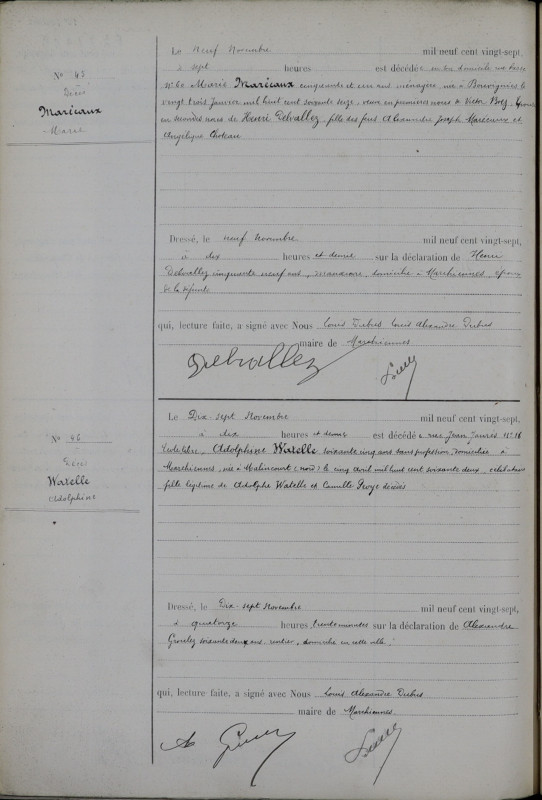 Le Neuf Novembre mil neuf cent vingt-sept,
à sept heures est décédée en son domicile rue
N° 45
Décès
Marécaux
Marie
N° 60 Marie Marécaux cinquante et un ans ménagère née à Bouvignies le
vingt trois Janvier mil huit cent soixante seize, veuve en premières noces de Victor Épouse
en secondes noces de Henri Delvallez, fille des feus Alexandre Joseph Marécaux et
Angélique
Dressé, le neuf Novembre mil neuf cent vingt-sept,
à dix heures et demie sur la déclaration de Henri
Delvallez cinquante neuf ans, domicilié à Marchiennes, époux
de la défunte
qui, lecture faite, a signé avec Nous Louis Alexandre Dubus
maire de Marchiennes
Delvallez
Le Dix-sept Novembre mil neuf cent vingt-sept,
à dix heures et demie est décédée rue Jean Jaurès N° 16
N° 46
Décès
Watelle
Adolphine
Adolphine Watelle soixante cinq ans sans profession, domiciliée à
Marchiennes, née à Malincourt (nord) le cinq Avril mil huit cent soixante deux, célibataire
fille légitime de Adolphe Watelle et Camille décédés
Dressé, le Dix-sept Novembre mil neuf cent vingt-sept,
à quatorze heures trente minutes sur la déclaration de Alexandre
soixante deux ans, rentier, domicilié en cette ville
qui, lecture faite, a signé avec Nous Louis Alexandre Dubus
maire de Marchiennes